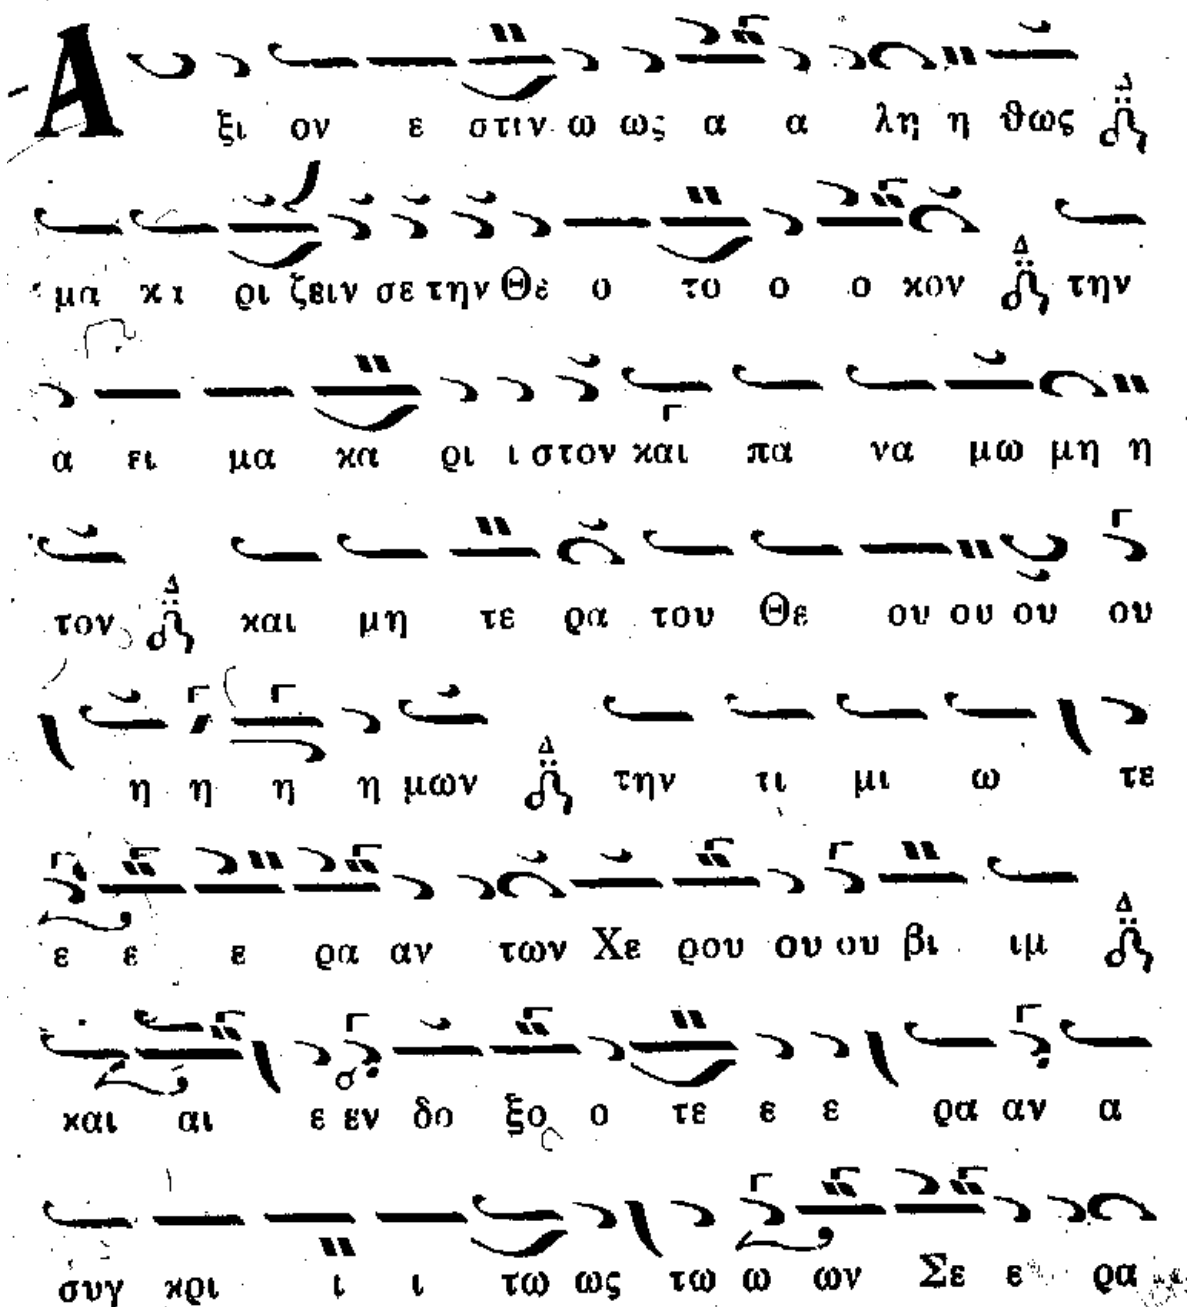 Α ξι ον ε στιν ω ως α α λη η θως Δ
μα κα ρι ζειν σε την Θε ο το ο ο κον Δ την
α ει μα κα ρι ι στον και πα να μω μη η
τον Δ και μη τε ρα του Θε ου ου ου ου
η η η η μων Δ την τι μι ω τε
ε ε ε ρα αν των Χε ρου ου ου βι ιμ Δ
και αι ε εν δο ξο ο τε ε ε ρα αν α
συγ κρι ι ι τω ως τω ω ων Σε ε ρα